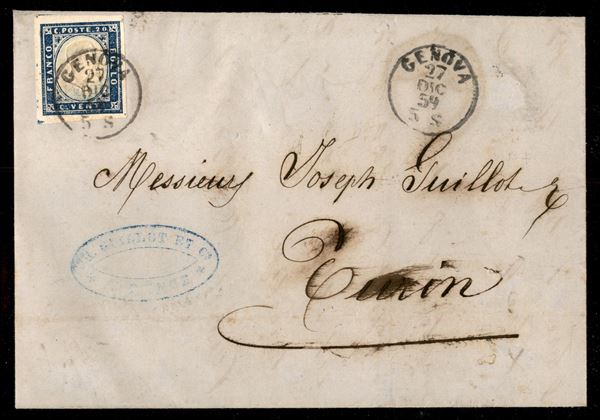 C. POSTE. 20
FRANCO
BOLLO
C. VENTI
GENOVA
27
DIC
5 S
GENOVA
27
DIC
59
5 S
Messieurs Joseph Guillot &
Turin
GUILLOT ET C